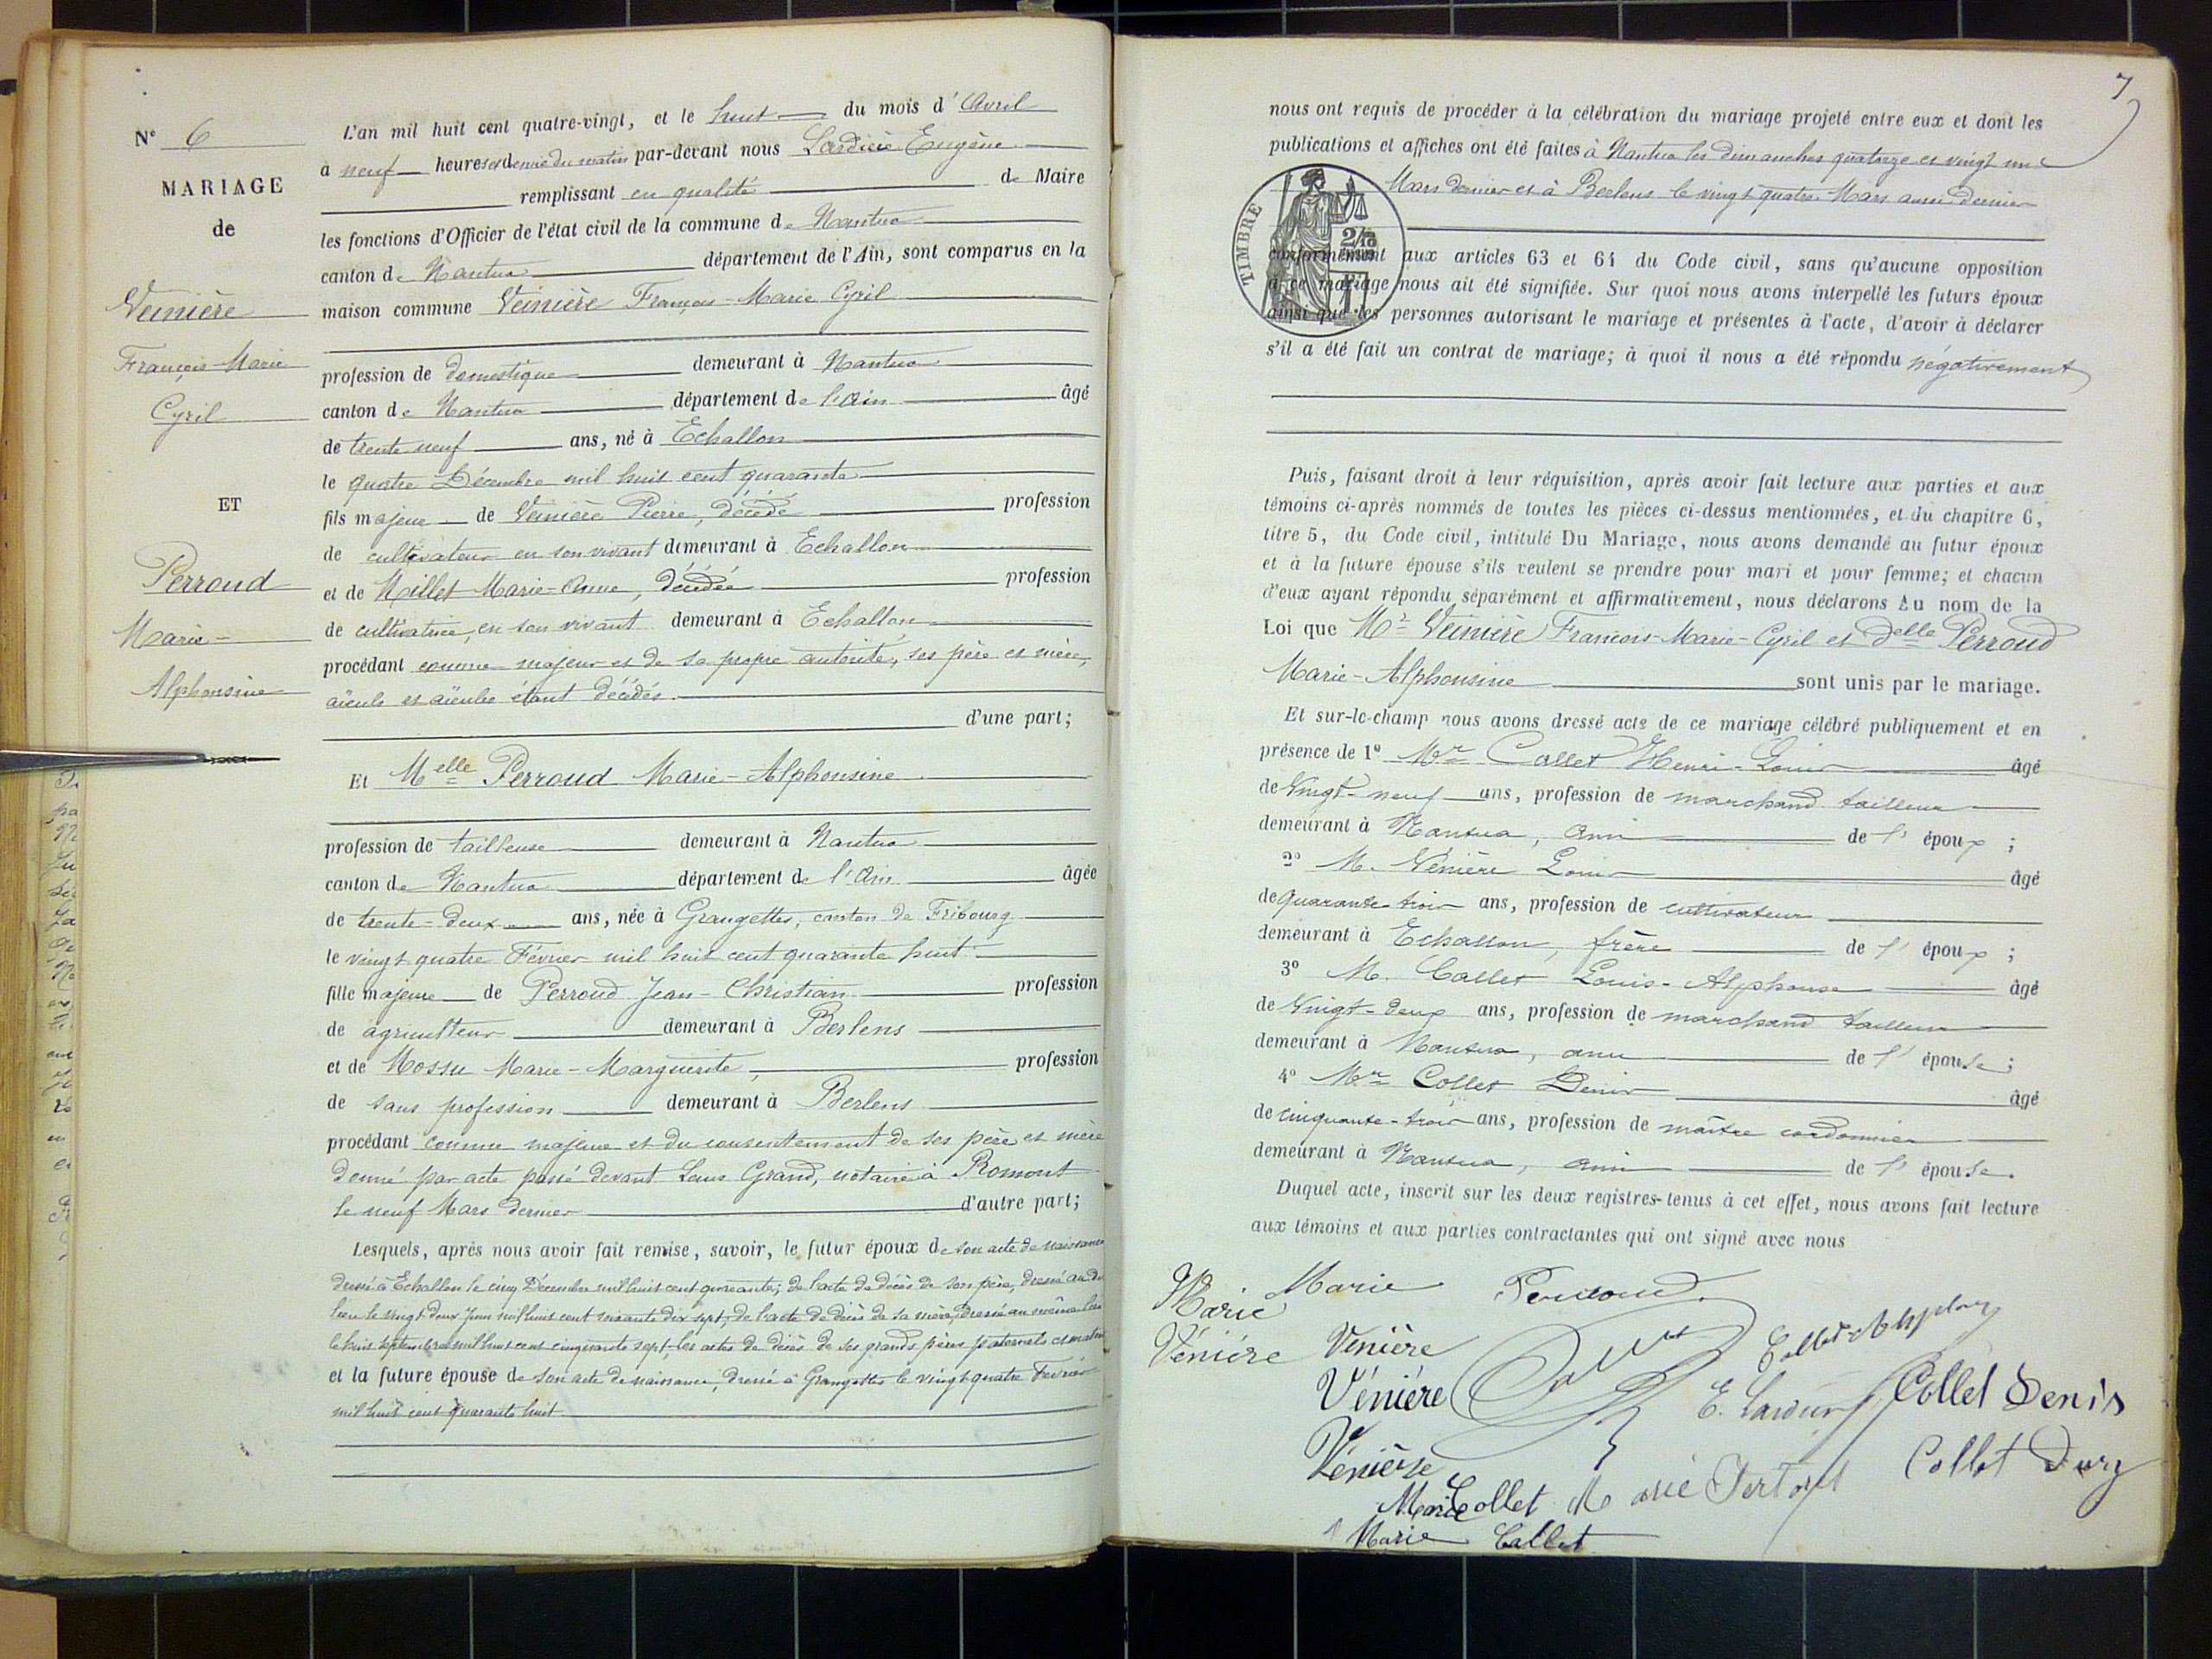 N° 6
MARIAGE
de
Veinière
François-Marie
Cyril
ET
Perroud
Marie-
Alphonsine
L'an mil huit cent quatre-vingt, et le huit du mois d'Avril
à neuf heures et demie du matin par-devant nous Eugène
remplissant en qualité de Maire
les fonctions d'Officier de l'état civil de la commune de Nantua
canton de Nantua département de l'Ain, sont comparus en la
maison commune Veinière François-Marie Cyril
profession de domestique demeurant à Nantua
canton de Nantua département de l'Ain âgé
de trente neuf ans, né à Echallon
le quatre Décembre mil huit cent quarante
fils majeur de Veinière Pierre, décédé profession
de cultivateur en son vivant demeurant à Echallon
et de Millet Marie-Anne, décédée profession
de cultivatrice, en son vivant demeurant à Echallon
procédant comme majeur et de sa propre autorité, ses père et mère,
aïeuls et aïeules étant décédés.
d'une part;
Et Melle Perroud Marie-Alphonsine
profession de tailleuse demeurant à Nantua
canton de Nantua département de l'Ain âgée
de trente-deux ans, née à Grangettes, canton de Fribourg
le vingt quatre Février mil huit cent quarante huit
fille majeure de Perroud Jean-Christian profession
de agriculteur demeurant à Berlens
et de Mossu Marie-Marguerite, profession
de sans profession demeurant à Berlens
procédant comme majeure et du consentement de ses père et mère
donné par acte passé devant Louis Grand, notaire à Romont
le neuf Mars dernier d'autre part;
Lesquels, après nous avoir fait remise, savoir, le futur époux de son acte de naissance
dressé à Echallon le cinq Décembre mil huit cent quarante; de l'acte de décès de son père, dressé au dit
lieu le vingt deux Juin mil huit cent soixante dix sept; de l'acte de décès de sa mère, dressé au même lieu
le huit septembre mil huit cent cinquante sept, les actes de décès de ses grands pères paternels et
et la future épouse de son acte de naissance, dressé à Grangettes le vingt quatre Février
mil huit cent quarante huit
7
nous ont requis de procéder à la célébration du mariage projeté entre eux et dont les
publications et affiches ont été faites à Nantua les dimanches quatorze et vingt un
Mars dernier et à Berlens le vingt quatre Mars aussi dernier
TIMBRE
conformément aux articles 63 et 64 du Code civil, sans qu'aucune opposition
à ce mariage nous ait été signifiée. Sur quoi nous avons interpellé les futurs époux
ainsi que les personnes autorisant le mariage et présentes à l'acte, d'avoir à déclarer
s'il a été fait un contrat de mariage; à quoi il nous a été répondu négativement
Puis, faisant droit à leur réquisition, après avoir fait lecture aux parties et aux
témoins ci-après nommés de toutes les pièces ci-dessus mentionnées, et du chapitre 6,
titre 5, du Code civil, intitulé Du Mariage, nous avons demandé au futur époux
et à la future épouse s'ils veulent se prendre pour mari et pour femme; et chacun
d'eux ayant répondu séparément et affirmativement, nous déclarons Au nom de la
Loi que Mr Veinière François-Marie-Cyril et Delle Perroud
Marie-Alphonsine sont unis par le mariage.
Et sur-le-champ nous avons dressé acte de ce mariage célébré publiquement et en
présence de 1° Mr Collet Henri-Louis âgé
de Vingt-neuf ans, profession de marchand tailleur
demeurant à Nantua, ami de l'époux;
2° M. Vénière Louis âgé
de quarante-trois ans, profession de cultivateur
demeurant à Echallon, frère de l'époux;
3° M. Collet Louis-Alphonse âgé
de Vingt-deux ans, profession de marchand tailleur
demeurant à Nantua, ami de l'épouse;
4° Mr Collet Denis âgé
de cinquante-trois ans, profession de maître cordonnier
demeurant à Nantua, ami de l'épouse.
Duquel acte, inscrit sur les deux registres tenus à cet effet, nous avons fait lecture
aux témoins et aux parties contractantes qui ont signé avec nous
Marie Perroud
Marie
Vénière Venière
Vénière
Collet Denis
Vénièse
Marie Collet
Marie Collet